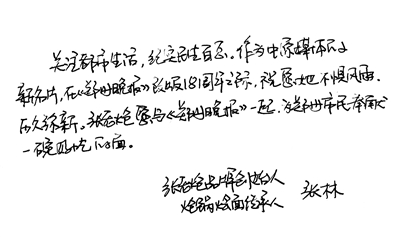 关注都市生活，纪实民生百态。作为中原媒体的
新名片，在《郑州晚报》改版18周年之际，祝愿她不惧风雨、
历久弥新。张老炝愿与《郑州晚报》一起，为郑州市民奉献
一碗匠心面。
张老炝品牌创始人
炝锅烩面传承人 张林